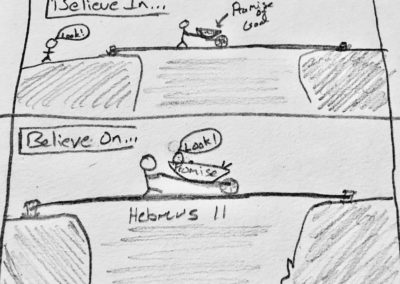 Believe In...
Look!
Promise
of
God
Believe On...
Look!
Promise
Hebrews 11